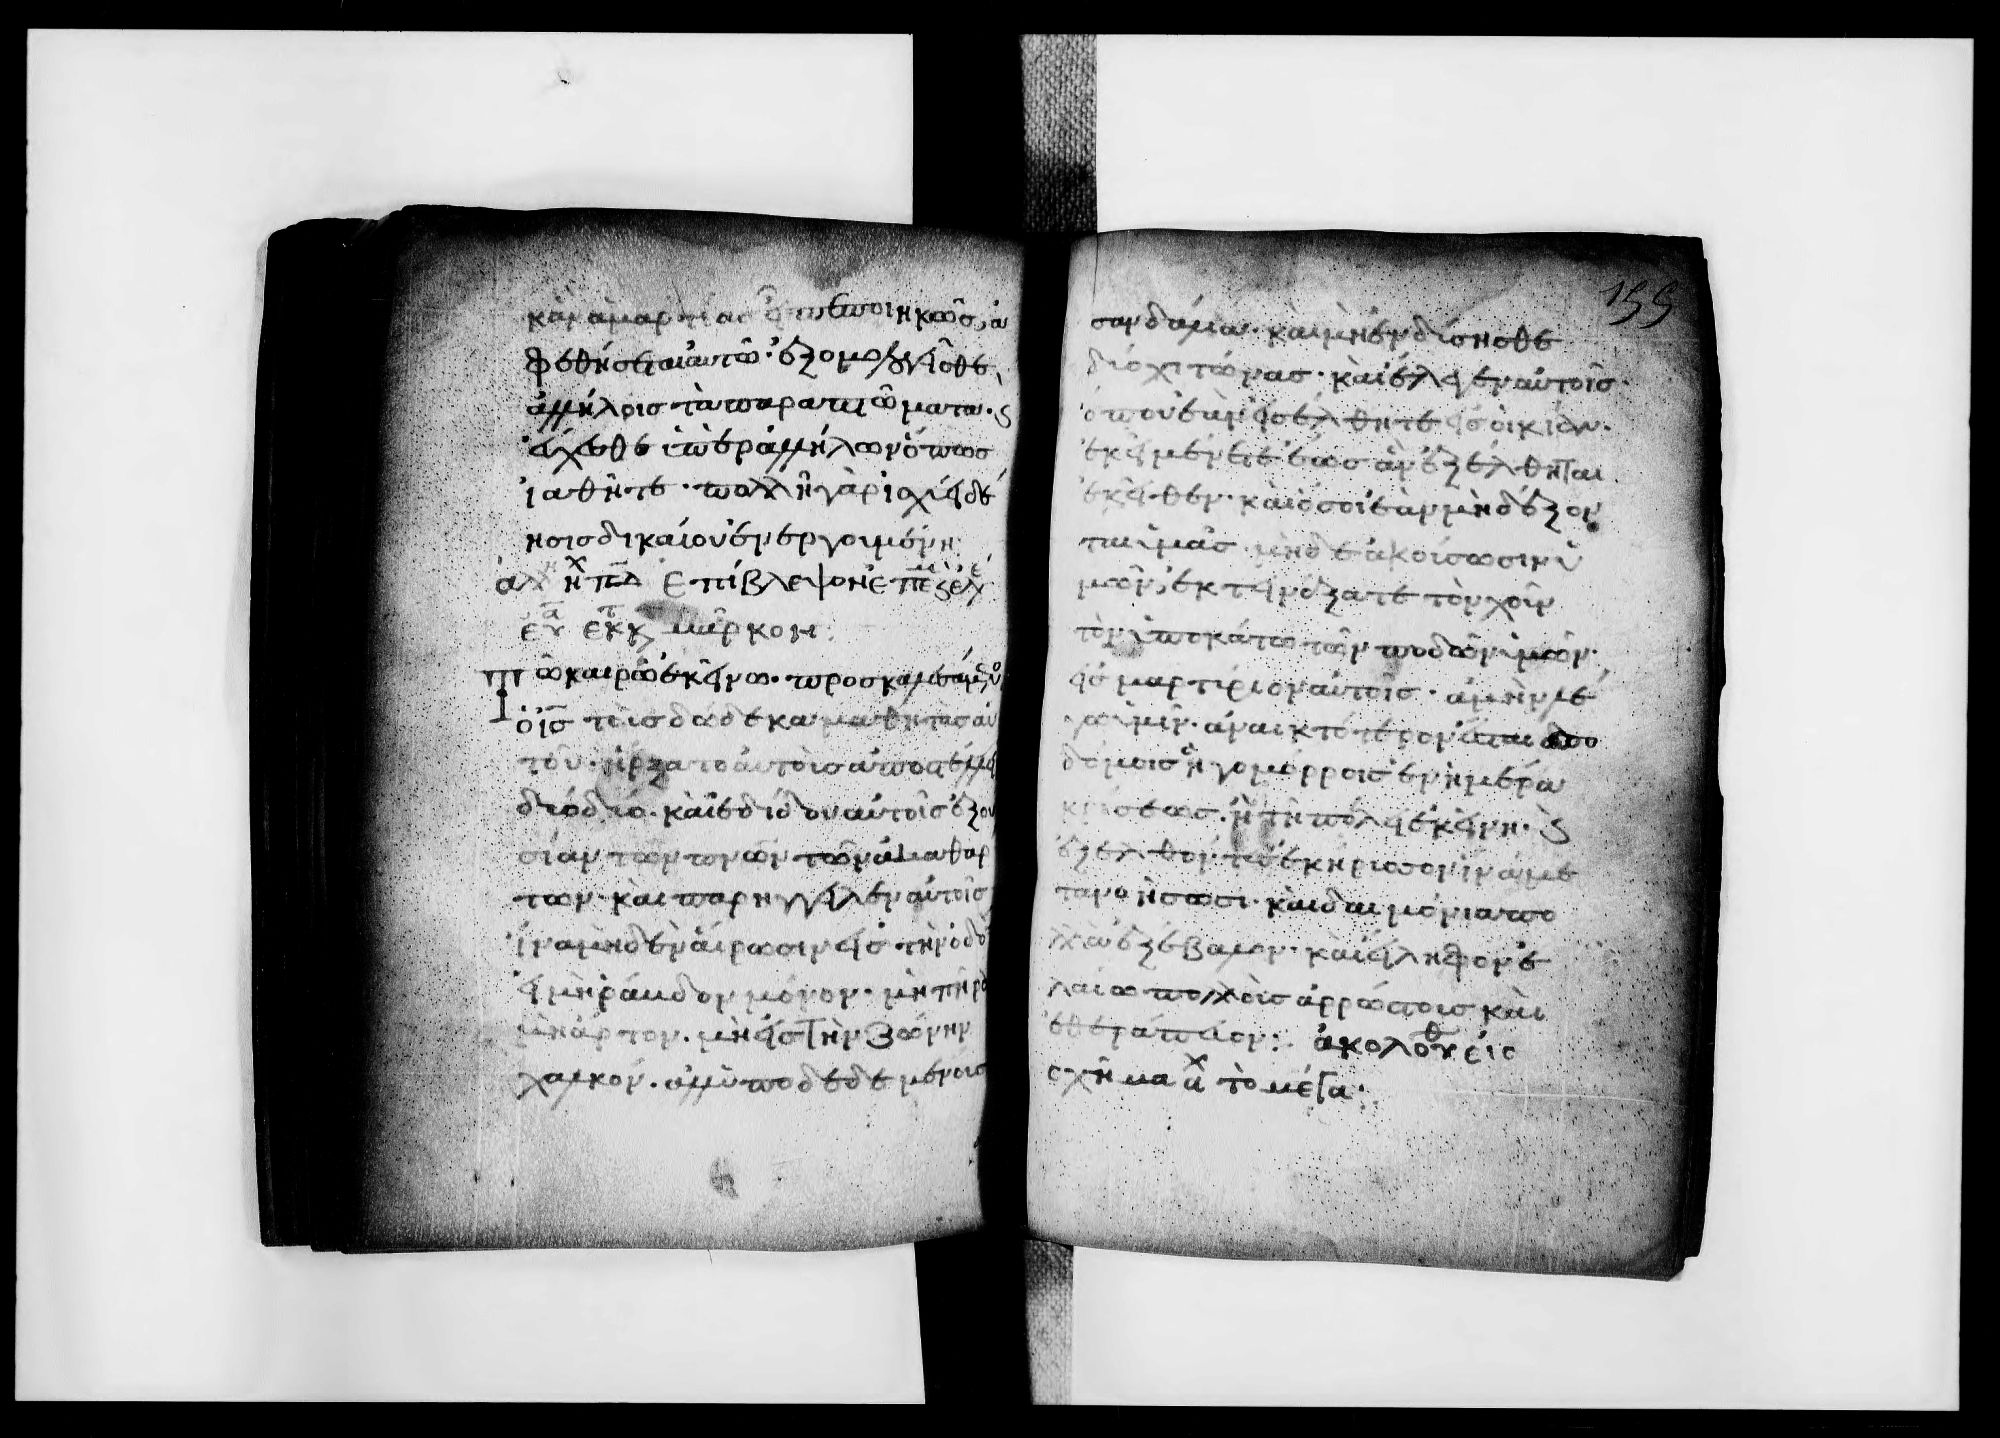 κἂν ἁμαρτίας ᾖ πεποιηκῶς, ἀ
φεθήσεται αὐτῶ· ἐξομολογεῖσθε
ἀλλήλοις τὰ παραπτώματα· ϗ
εὔχεσθε ὑπὲρ ἀλλήλων ὅπως
ἰαθῆτε· πολλὴ γὰρ ἰσχύει δέ
ησις δικαίου ἐνεργουμένη:
ἀλλη ἠχ πλ δ Ἐπίβλεψον ἐπ ἐμὲ ϗ ἐλέ
εὐα ἐκ τ κ μάρκον:
Τῶ καιρῶ ἐκείνω· προσκαλεσάμενος
ὁ ις τοὺς δώδεκα μαθητὰς αὐ
τοῦ· ἤρξατο αὐτοὺς ἀποστέλλει
δύο δύο· καὶ ἐδίδου αὐτοῖς ἐξου
σίαν τῶν πνων τῶν ἀκαθάρ
των· καὶ παρήγγειλεν αὐτοῖς
ἵνα μηδὲν αἴρωσιν εἰς τὴν ὁδὸ
εἰ μὴ ράβδον μόνον· μὴ πήρα
μὴ ἄρτον· μὴ εἰς τὴν ζώνην
χαλκόν· ἀλλ' ὑποδεδεμένοις
σανδάλια· καὶ μὴ ἐνδύσησθε
δύο χιτώνας· καὶ ἔλεγεν αὐτοῖς·
ὅπου ἐὰν εἰσέλθητε εἰς οἰκίαν·
ἐκεῖ μένετε ἕως ἂν ἐξέλθηται
ἐκεῖθεν· καὶ ὅσοι ἐὰν μὴ δέξον
ται ὑμᾶς μηδὲ ἀκούσωσιν ὑ
μῶν, ἐκτεινάξατε τὸν χοῦν
τὸν ὑποκάτω τῶν ποδῶν ὑμῶν·
εἰς μαρτύριον αὐτοῖς· ἀμὴν λέ
γω ὑμῖν· ἀνεκτότερον ἔσται σο
δόμοις ἢ γομόρροις ἐν ἡμέρα
κρίσεως· ἢ τῆ πόλει ἐκείνη· ϗ
ἐξελθόντες ἐκήρυσσον ἵνα με
τανοήσωσι· καὶ δαιμόνια πο
λλὰ ἐξέβαλλον· καὶ ἤλειφον ἐ
λαίω πολλοὺς ἀρρώστους καὶ
ἐθεράπευον: ἀκολουθ εἰς
σχῆμα ἀχ τὸ μέγα:
155